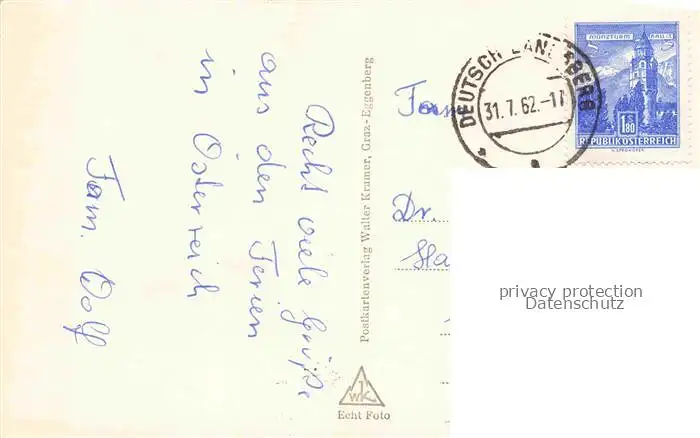 Recht viele Grüße
aus den Ferien
in Österreich
Fam. Wolf
Postkartenverlag Walter Kramer, Graz-Eggenberg
WK
Echt Foto
Fam
Dr.
Ha
DEUTSCHLANDSBERG
31.7.62.-17
MÜNZTURM HALL i.T
S 1.80
REPUBLIK ÖSTERREICH
privacy protection
Datenschutz